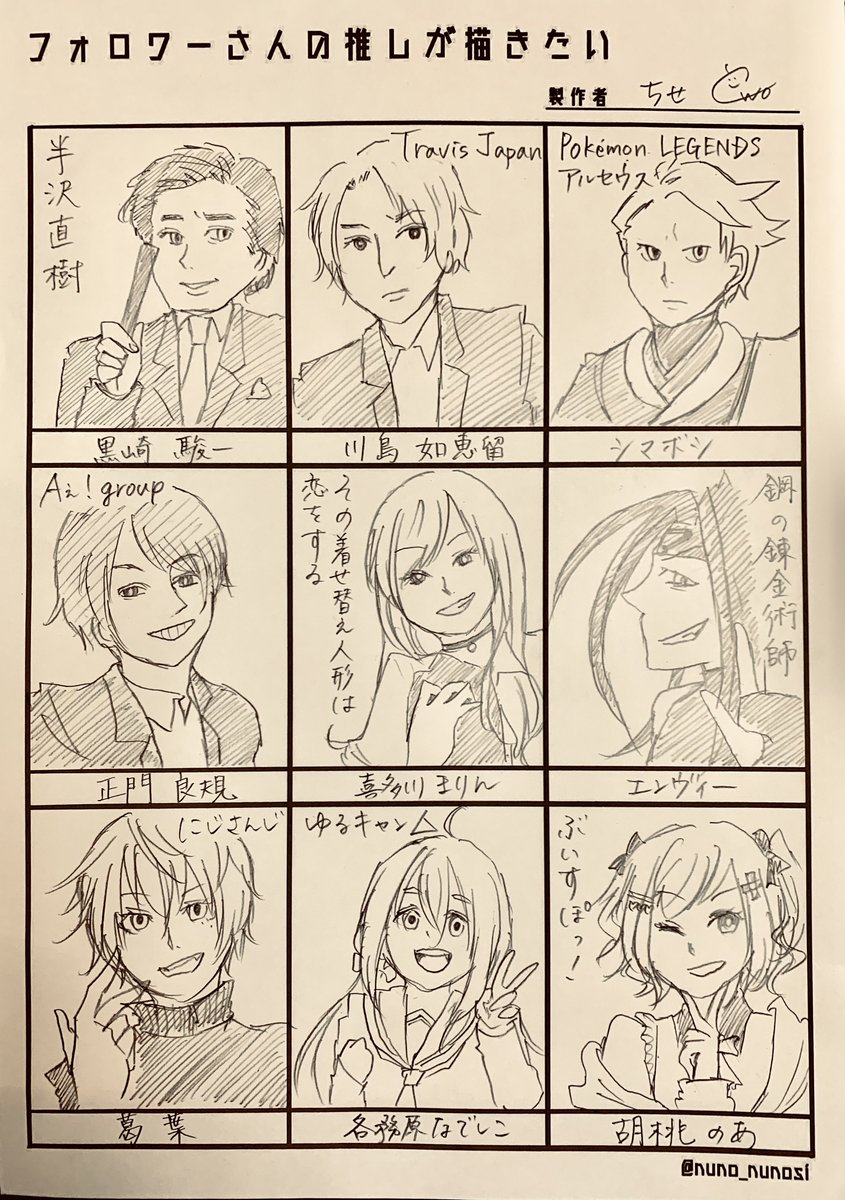 フォロワーさんの推しが描きたい
製作者 ちせ
半沢直樹
Travis Japan
Pokémon LEGENDS
アルセウス
黒崎 駿一
川島 如恵留
シマボシ
Aぇ! group
その着せ替え人形は
恋をする
鋼の錬金術師
正門 良規
喜多川まりん
エンヴィー
にじさんじ
ゆるキャン△
ぶいすぽっ!
葛葉
各務原なでしこ
胡桃のあ
@nuno_nunosi